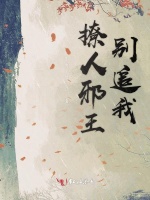 撩人邪王
别追我